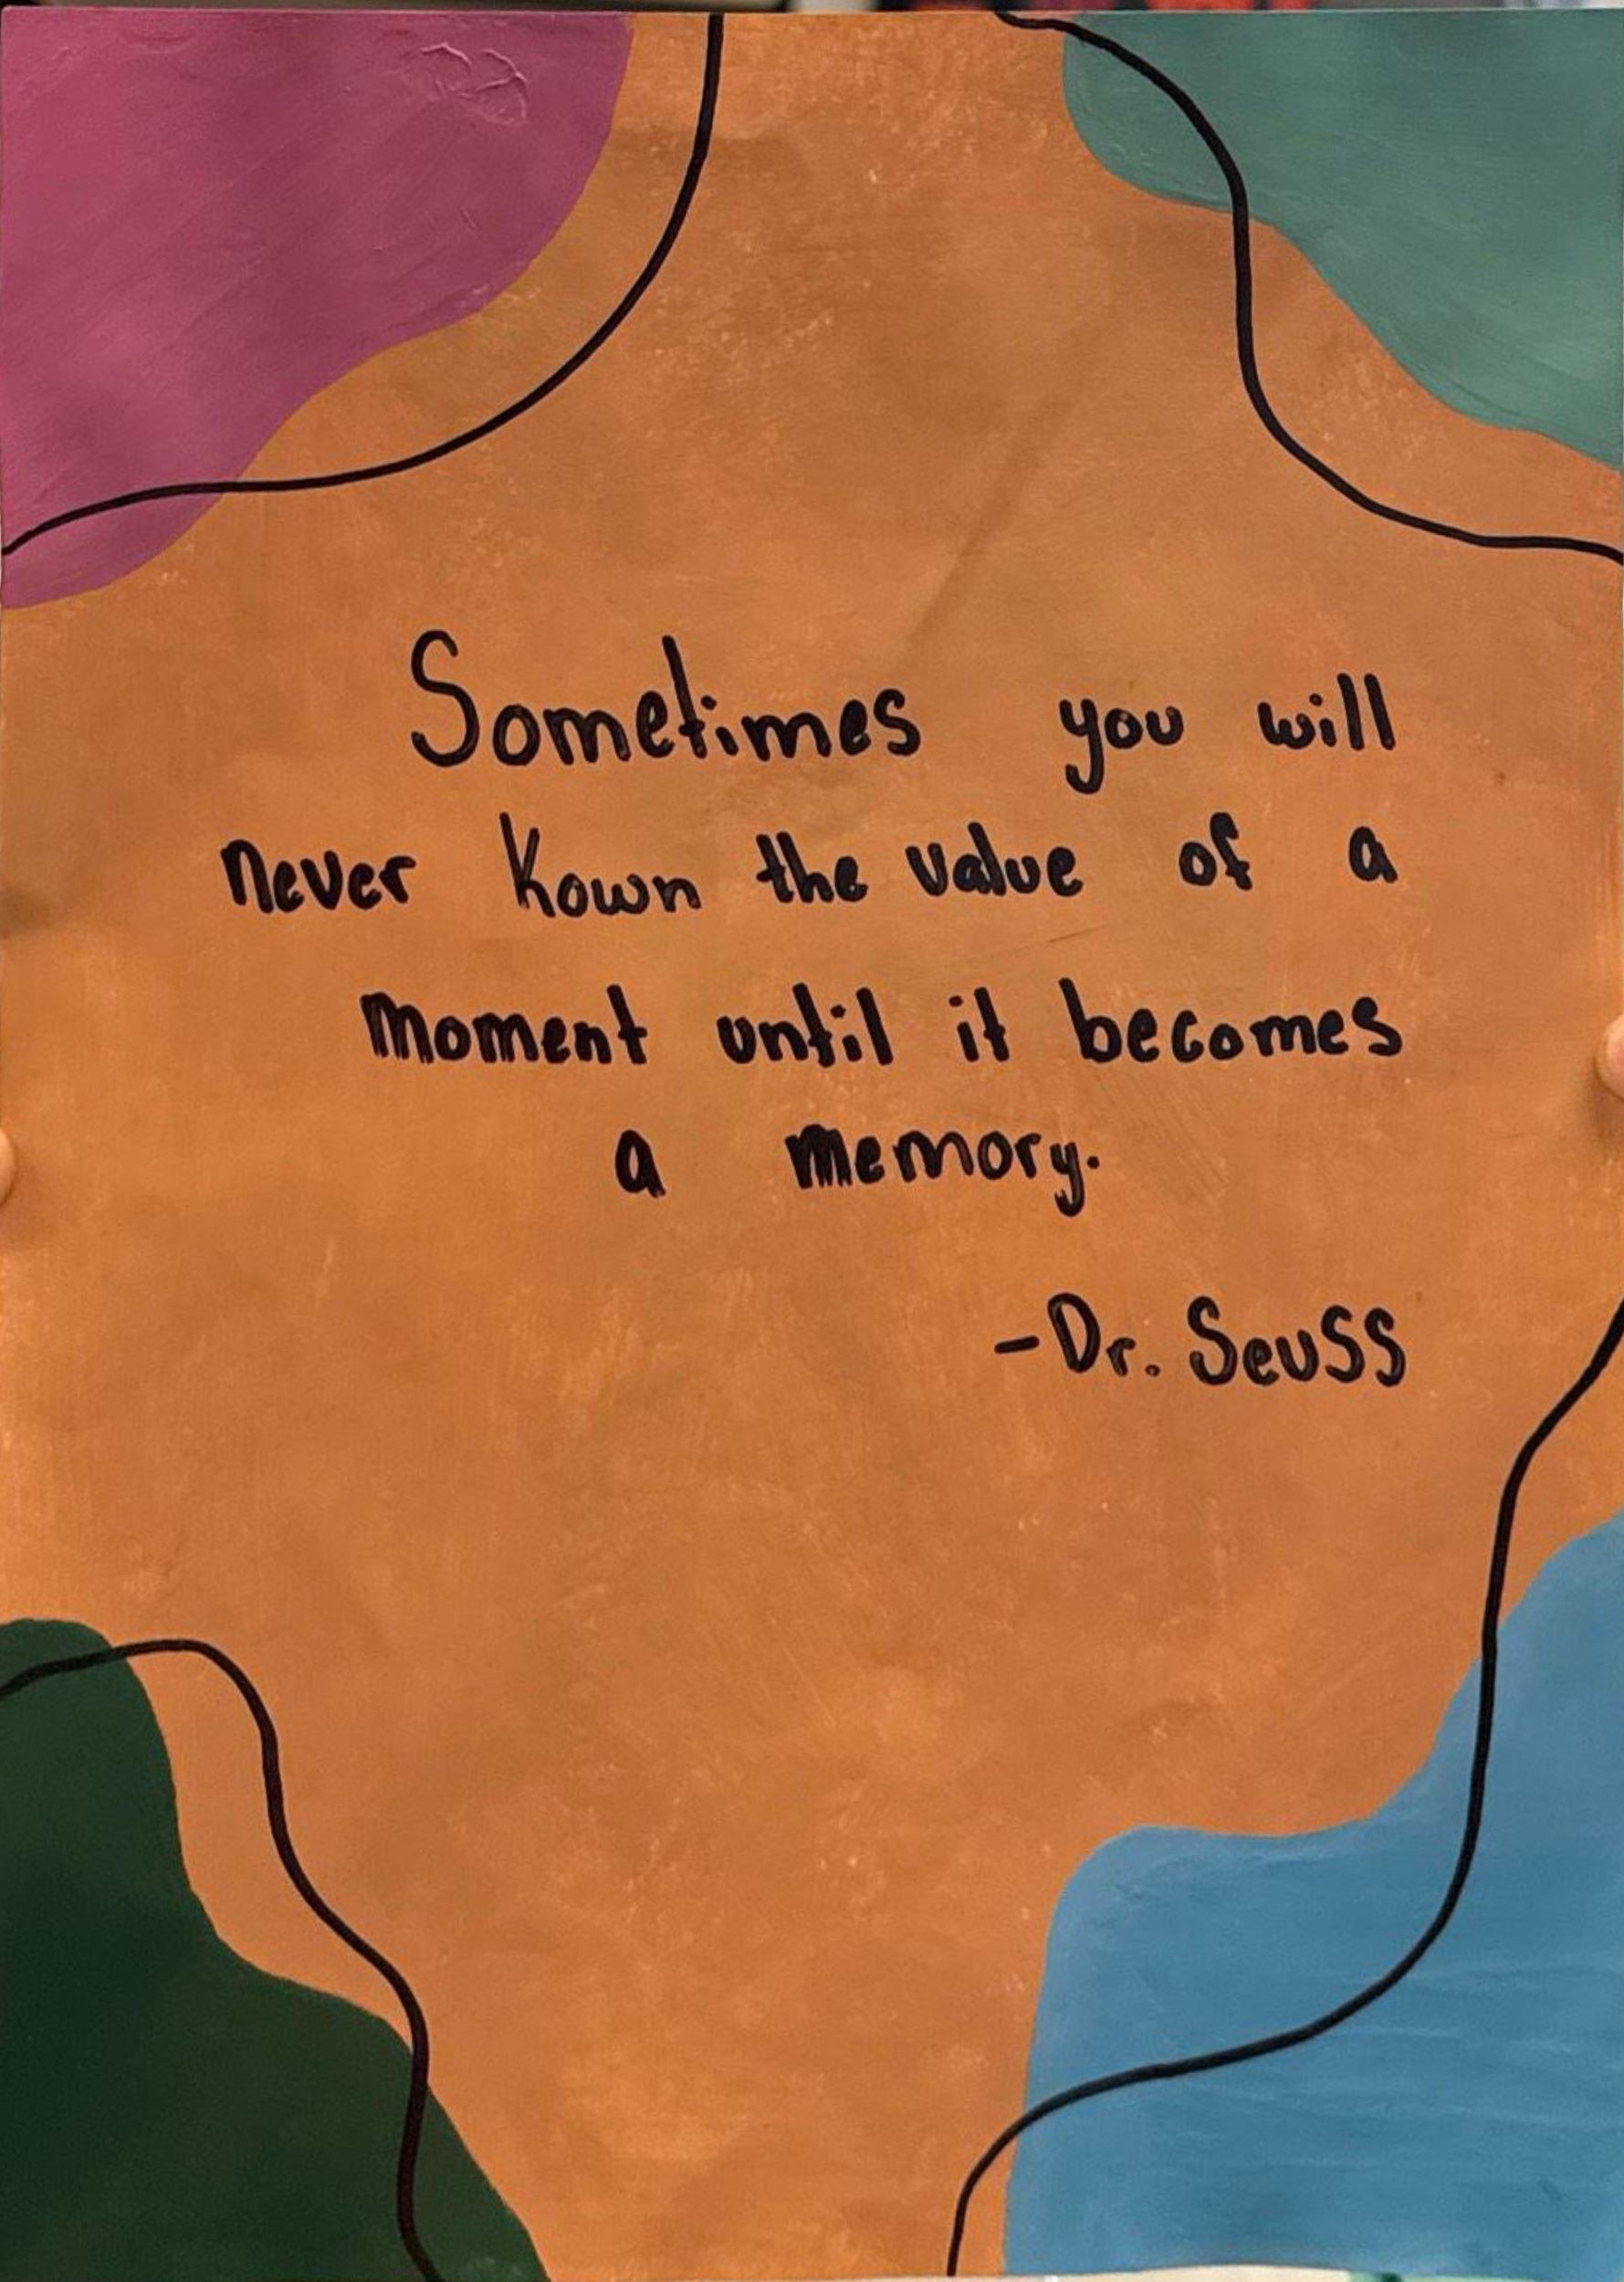 Sometimes you will
never kown the value of a
moment until it becomes
a memory.
-Dr. Seuss